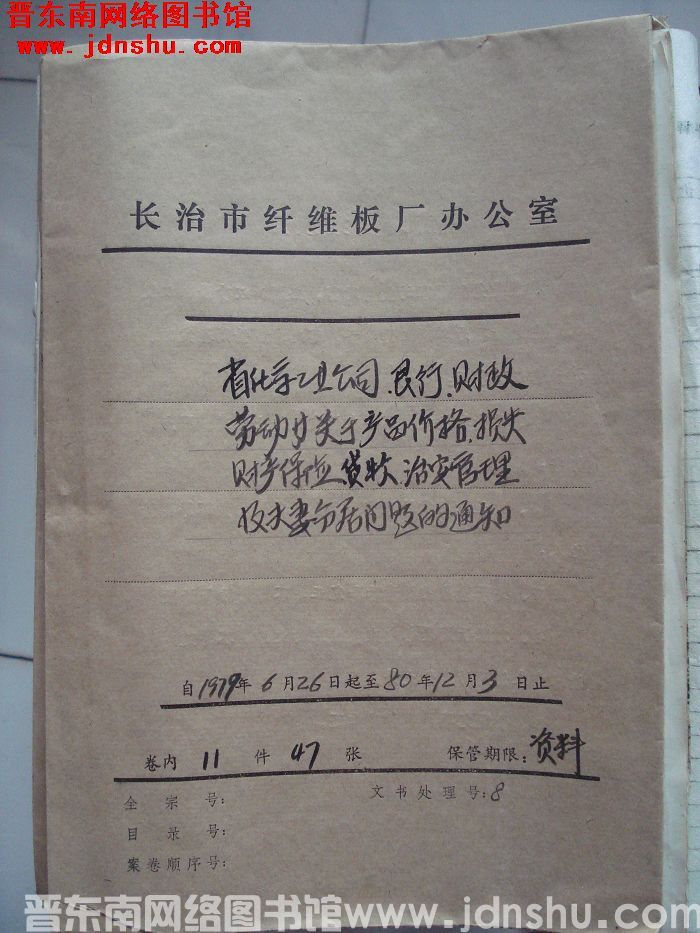 晋东南网络图书馆
www.jdnshu.com
长治市纤维板厂办公室
省化学工业公司、良行、财政
劳动
关于产品价格、损失
财产保险
治安管理
及夫妻分居问题的通知
自1979年6月26日起至80年12月3日止
卷内 11 件 47 张 保管期限:资料
全宗号: 文书处理号:8
目录号:
案卷顺序号:
晋东南网络图书馆www.jdnshu.com